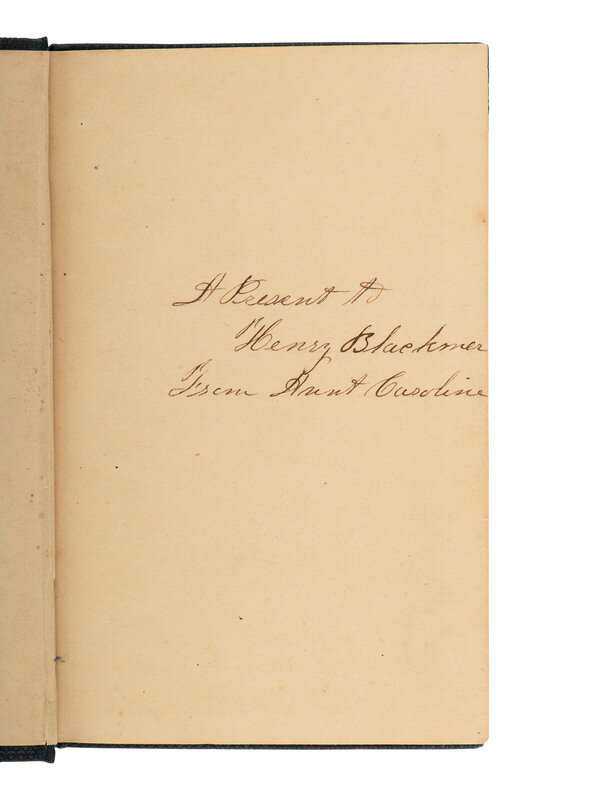 A Present to
Henry Blackmer
From Aunt Caroline